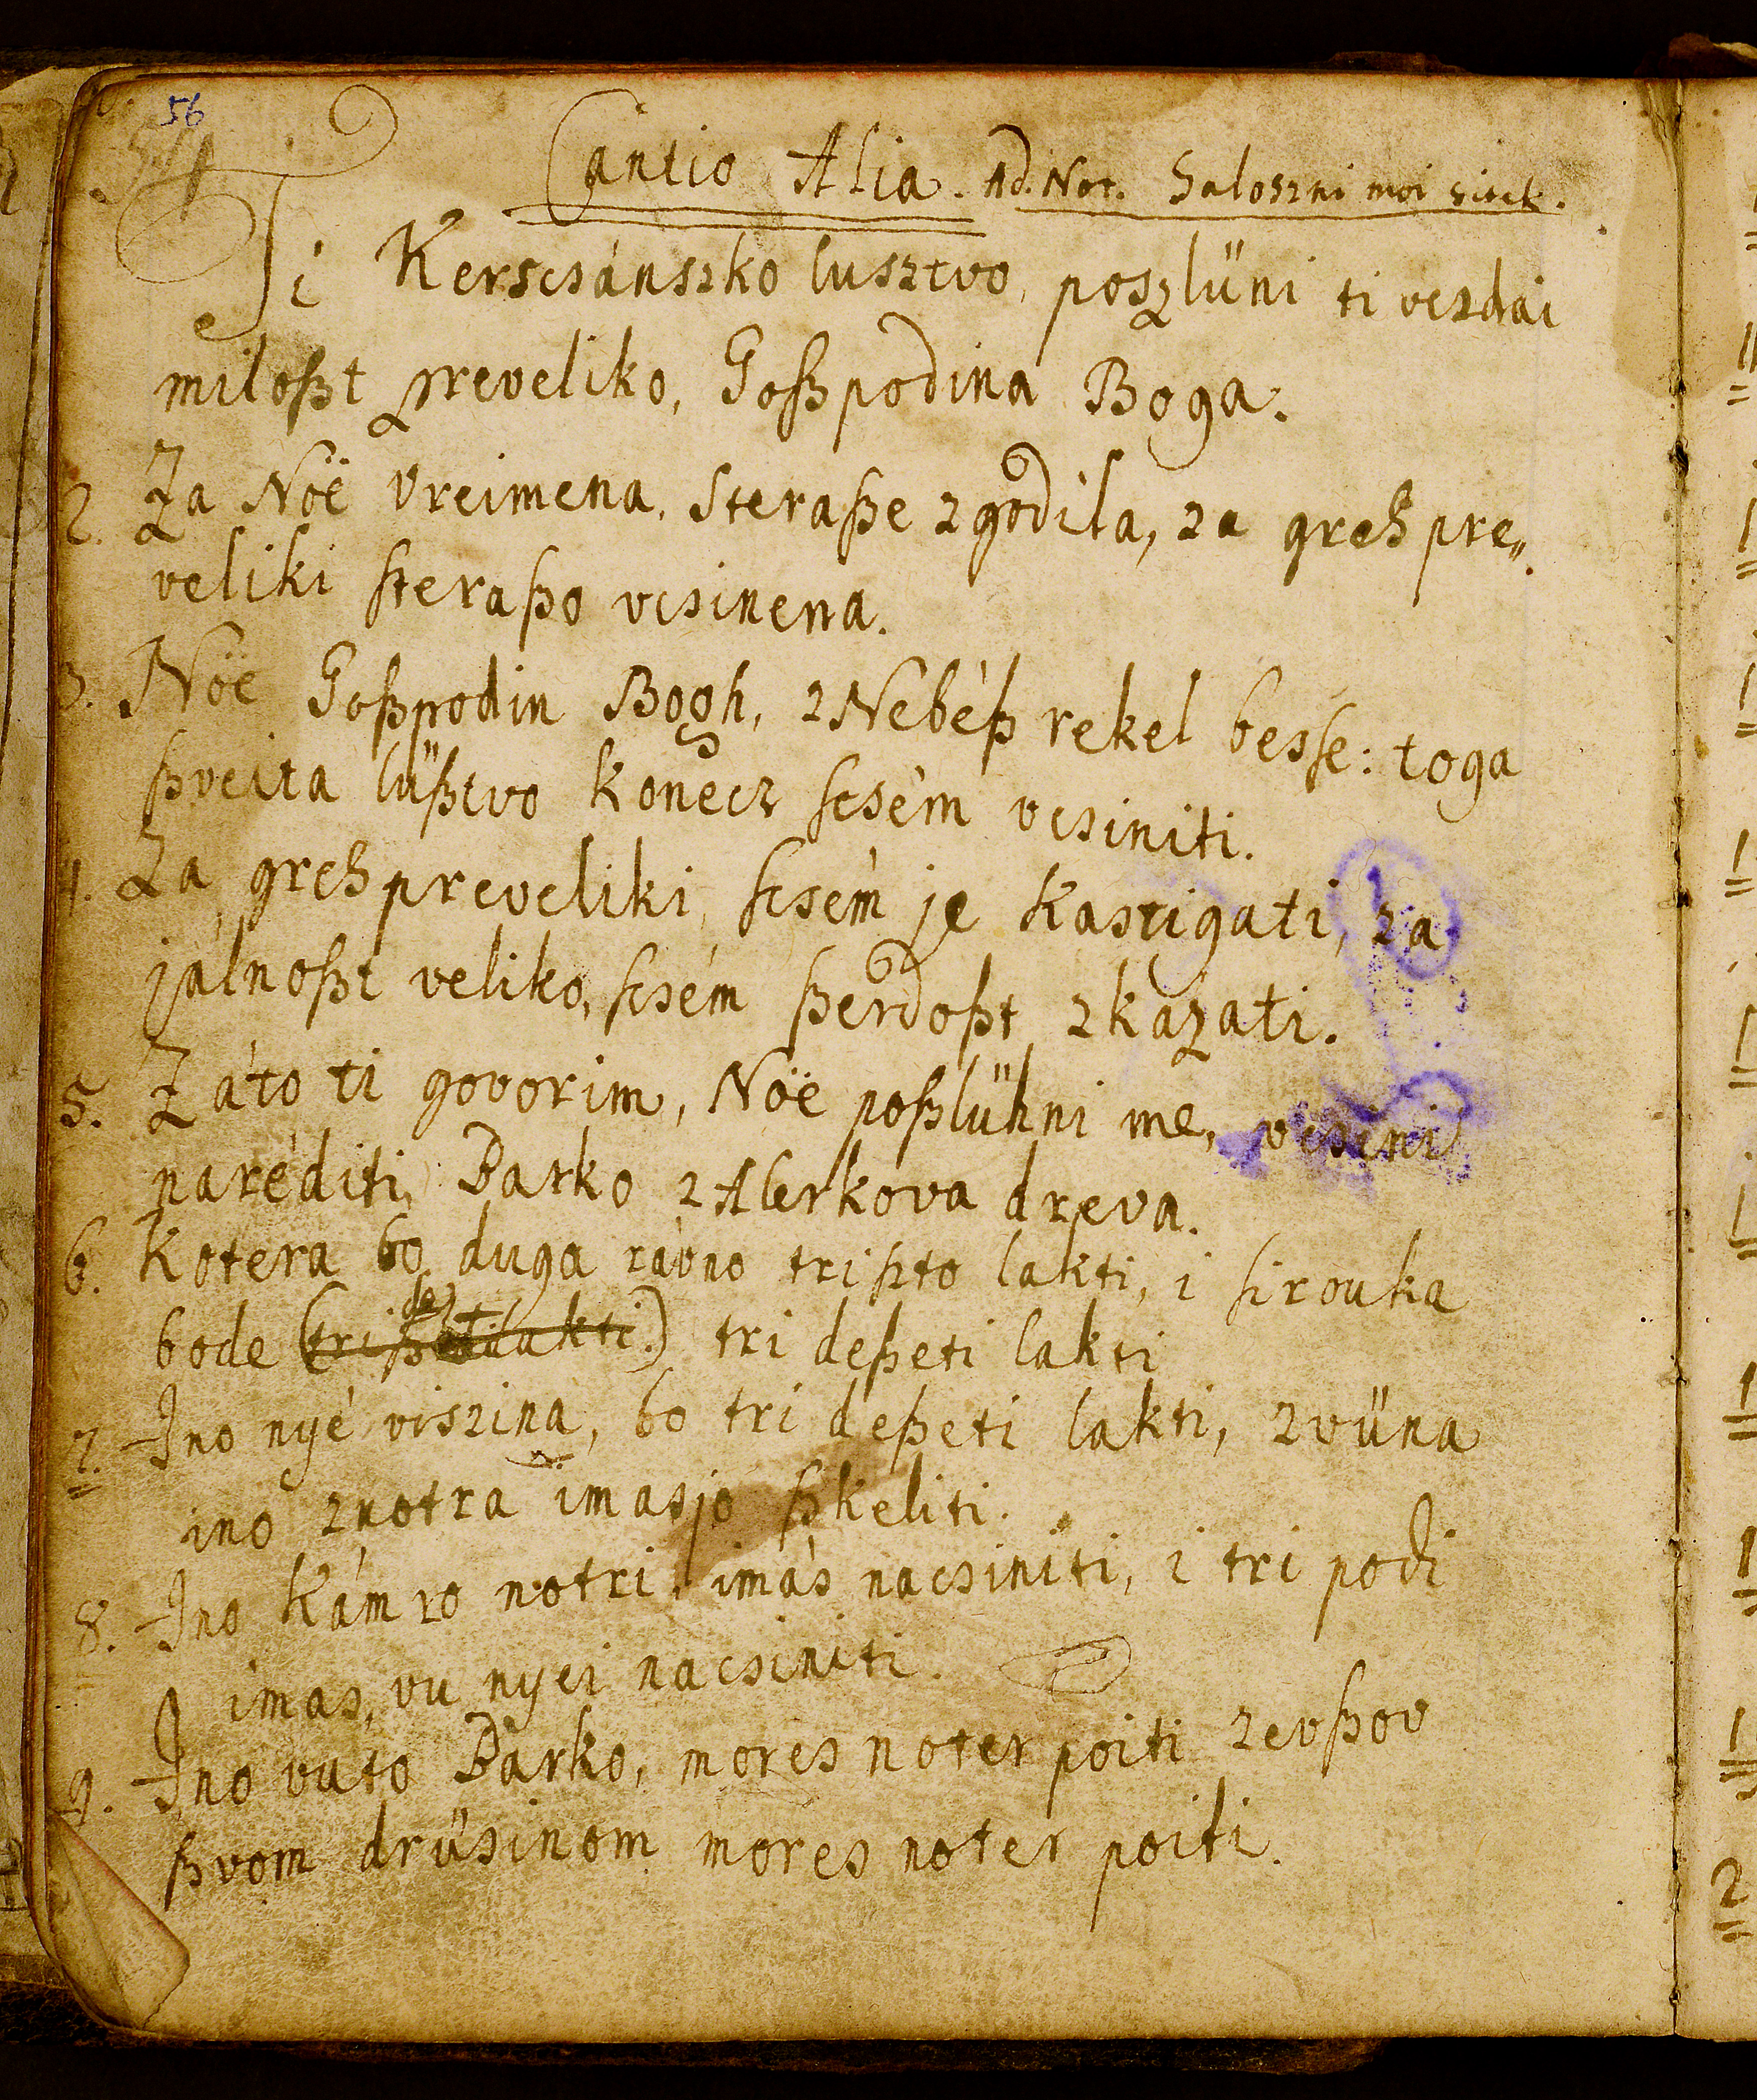 56
Cantio Alia. Ad. Not. Saloszni moi zitek.
Ti Kerscsánszko lusztvo, poszlüni ti vezdai
miloßt preveliko, Goßpodina Boga.
2. Za Nöë vreimena, steraße zgodila, za greh pre„
veliki steraßo vcsinena.
3. Nöë Goßpodin Bogh, z Nebéß rekel besse: toga
ßveita lüßtvo Konecz scsém vcsiniti.
4. Za greh preveliki, scsém je kastigati, za
jálnoßt veliko, scsém ßerdoßt zkazati.
5. Záto ti govorim, Nöë poßlühni me, vcsini
naréditi, Barko z Alerkova dreva.
6. Kotera bo duga rávno trißto lakti, i sirouka
bode (trißto lakti.) tri deßeti lakti
7. Ino nyé viszina, bo tri deßeti lakti, zvüna
ino znotra imasjo ßkeliti.
8. Ino Kámro notri, imás nacsiniti, i tri podi
imas, vu nyei nacsiniti.
9. Ino vuto Barko, mores noter poiti zevßov
ßvom drüsinom mores noter poiti.